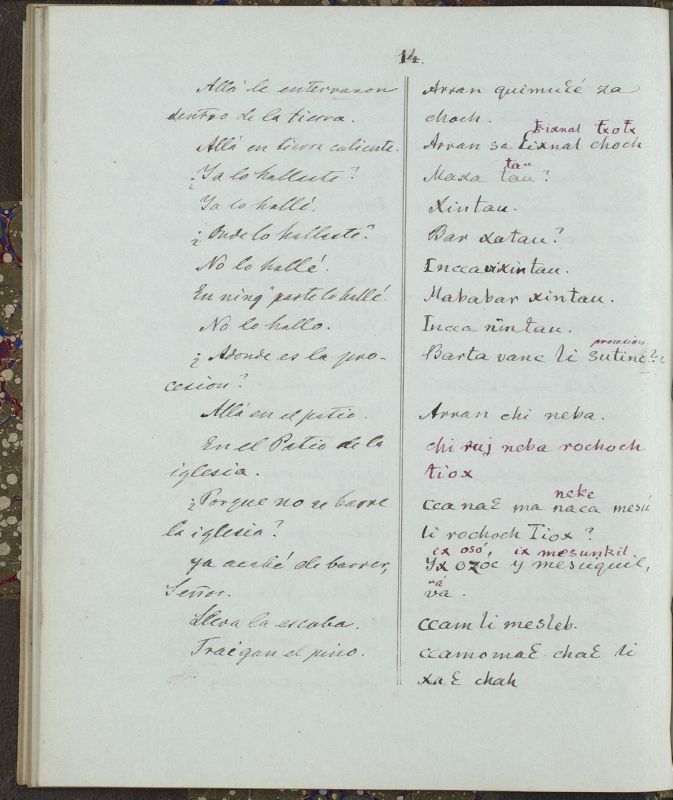 14.
Allá le enterraron
dentro de la tierra.
Allá en tierra caliente.
¿Ya lo hallaste?
Ya lo hallé.
¿Onde lo hallaste?
No lo hallé.
En ningª parte lo hallé.
No lo hallo.
¿Adonde es la pro-
cesion?
Allá en el patio.
En el Patio de la
iglesia.
¿Porque no se barre
la iglesia?
ya acabé de barrer,
Señor.
Lleva la escoba.
Traigan el pino.
Arran quimuꜪé za
choch.
ŧixnal ŧxoŧx
Arran sa Ꜫixnal choch
tau
Maxa tau?
Xintau.
Bar xatau?
Incca xintau.
Mababar xintau.
Incca nintau.
procesion
Barta vanc li sutinc?
Arran chi neba.
chi ruj neba rochoch
tiox
neke
cca naꜪ ma naca mesú
li rochoch Tiox?
ix osó, ix mesunkil
Yx ozoc y mesuquil,
rá
va.
ccam li mesleb.
ccamomaꜪ chaꜪ li
xaꜪ chah